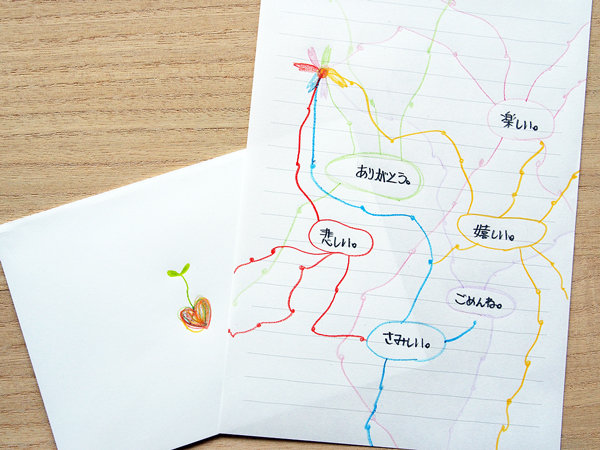 楽しい。
ありがとう。
嬉しい。
悲しい。
ごめんね。
さみしい。